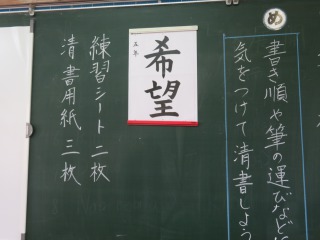 め
書き順や筆の運びなどに
気をつけて清書しよう
希望
五年
練習シート 二枚
清書用紙 三枚